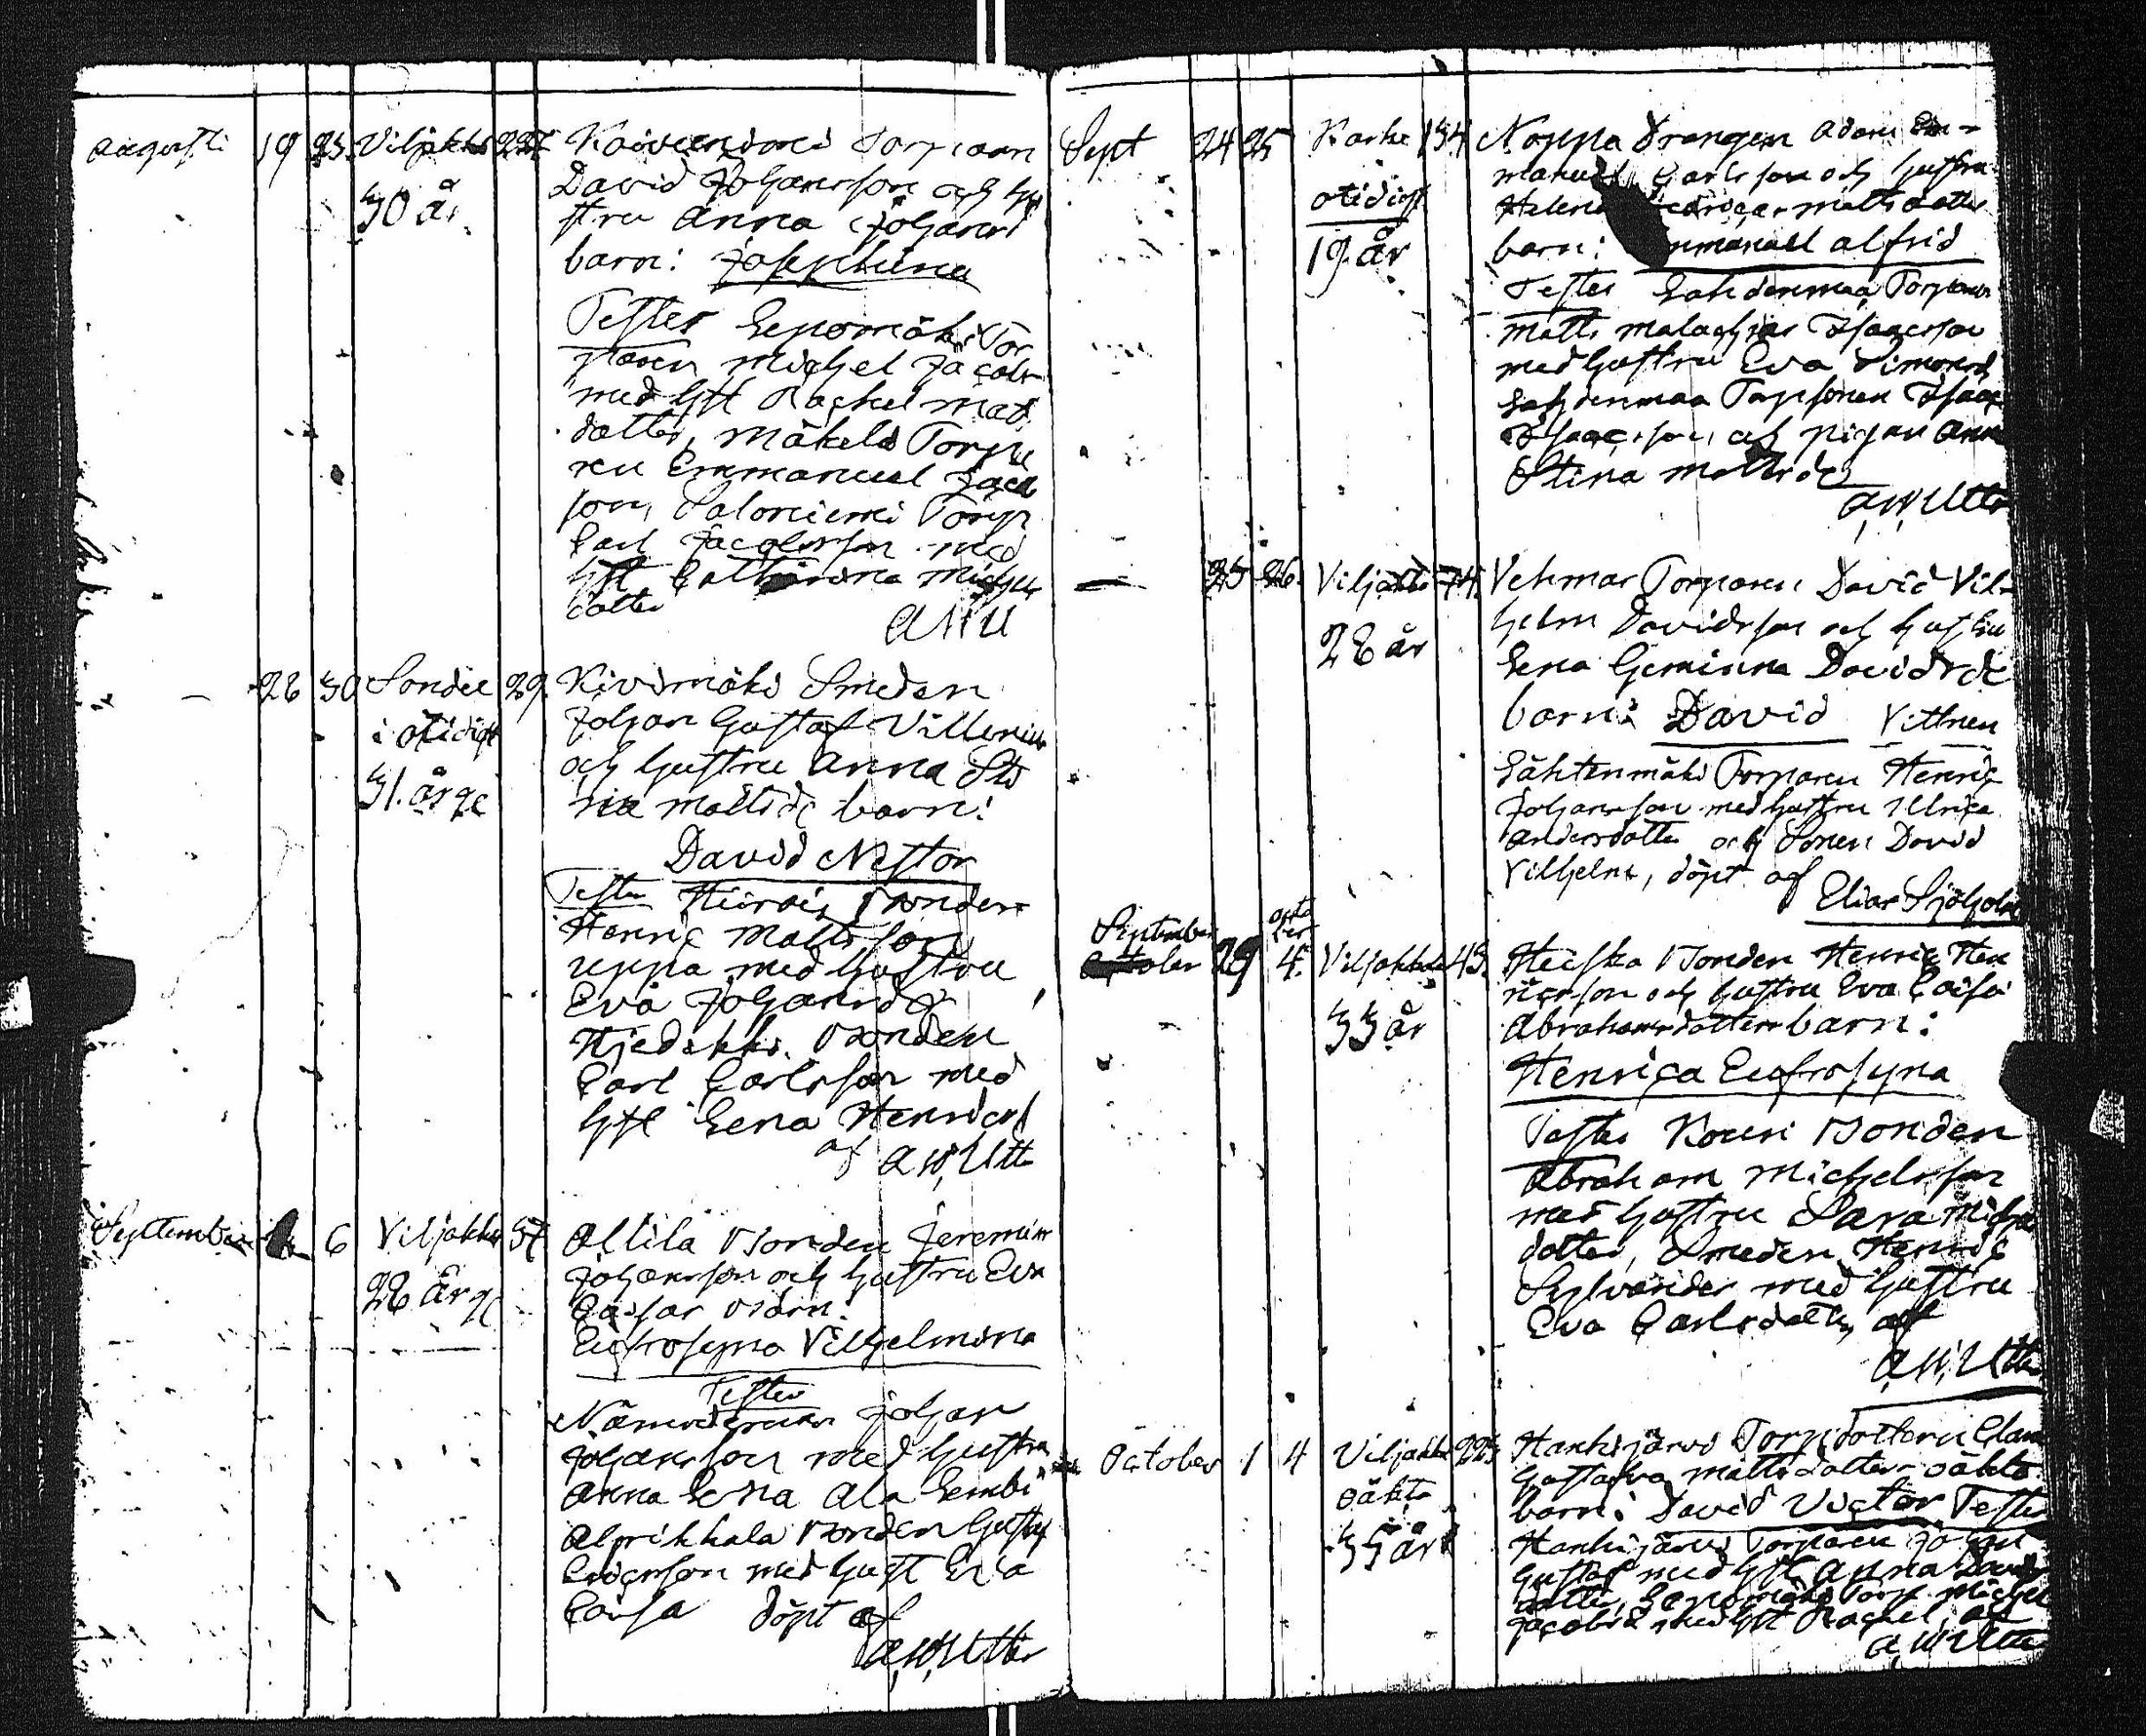 Augusti 19 23. Viljakk. 227. Koivuniemi Torparn
30 år. David Johansson och Hu
stru Anna Johans
barn: Josephiina
Testes Leponiemi Tor
paren Michel Jacobs
med hst Rachel Mats
dotter, Mäkelä Torpa
ren Emmanuel Jacob
son, Saloniemi Torp
Carl Jacobsson med
hst Catharina Michels
dotter
AWU
— 28 30 29. Kivimäki Smeden
i otidigt Johan Gustaf Villenius
31. årge och hustru Anna Sti
na Mattsd: barn:
David Nestor
Testes Bonden
Henric Mattsson
med hustru
Eva Johansd:
Hjedikko Bonden
Carl Carlsson med
hst Lena Henricsd
af AW, Utter
September 6 Viljakk. 57 Allila Bonden Jeremias
28 årge Johansson och hustru Eva
Caisas barn:
Eufrosyna Vilhelmina
Testes
Nämndeman Johan
Johansson med hustru
Anna Lena Ala Lembi
Alprikkala Bonden Gustaf
Ericsson med hust Eva
Caisa döpt af
A,W,Utter
Sept 24 25 Karhe 154 Noppa Drängen Adam Em-
otidigt manuel Carlsson och hustru
19. år Helena Mattsdotters
barn: Emmanuel Alfrid
Testes Lahdenmaa Torparen
Matts Malachias Isaacsson
med hustru Eva Simonsd
Lahdenmaa Torpsonen Isaac
Isaacsson, och pigan Anna
Stina Mattsd:
A,W,Utter
— 25 26. Viljakk. 74. Vehmas Torparen David Vil-
28 år helm Davidsson och hustru
Lena Gemima Davidsd:
barn: David Vittnen
Lähtenmäki Torparen Henric
Johansson med hustru Ulrica
Andersdotter och Sonen David
Vilhelm, döpt af
Elias Sjöholm
September 29 octo
ber 4. Viljakkala 43. Heiska Bonden Henric Hen
33 år ricsson och hustru Eva Caisa
Abrahamsdotters barn:
Henrica Eufrosyna
Testes Kouri Bonden
Abraham Michelsson
med hustru Sara Michels
dotter, Smeden Henric
Sylvander med hustru
Eva Carlsdotter, af
A,W,Utter
October 1 4 Viljakk. 223 Hankijärvi Torpdottern
oäkta Gustafva Mattsdotters oäkta
35 år barn: David Victor Testes
Hankijärvi Torparen Johan
Gustaf med hst Anna Davids
dotter, Torp. Michel
Jacobsd med hst Rachel, af
A,W,Utter